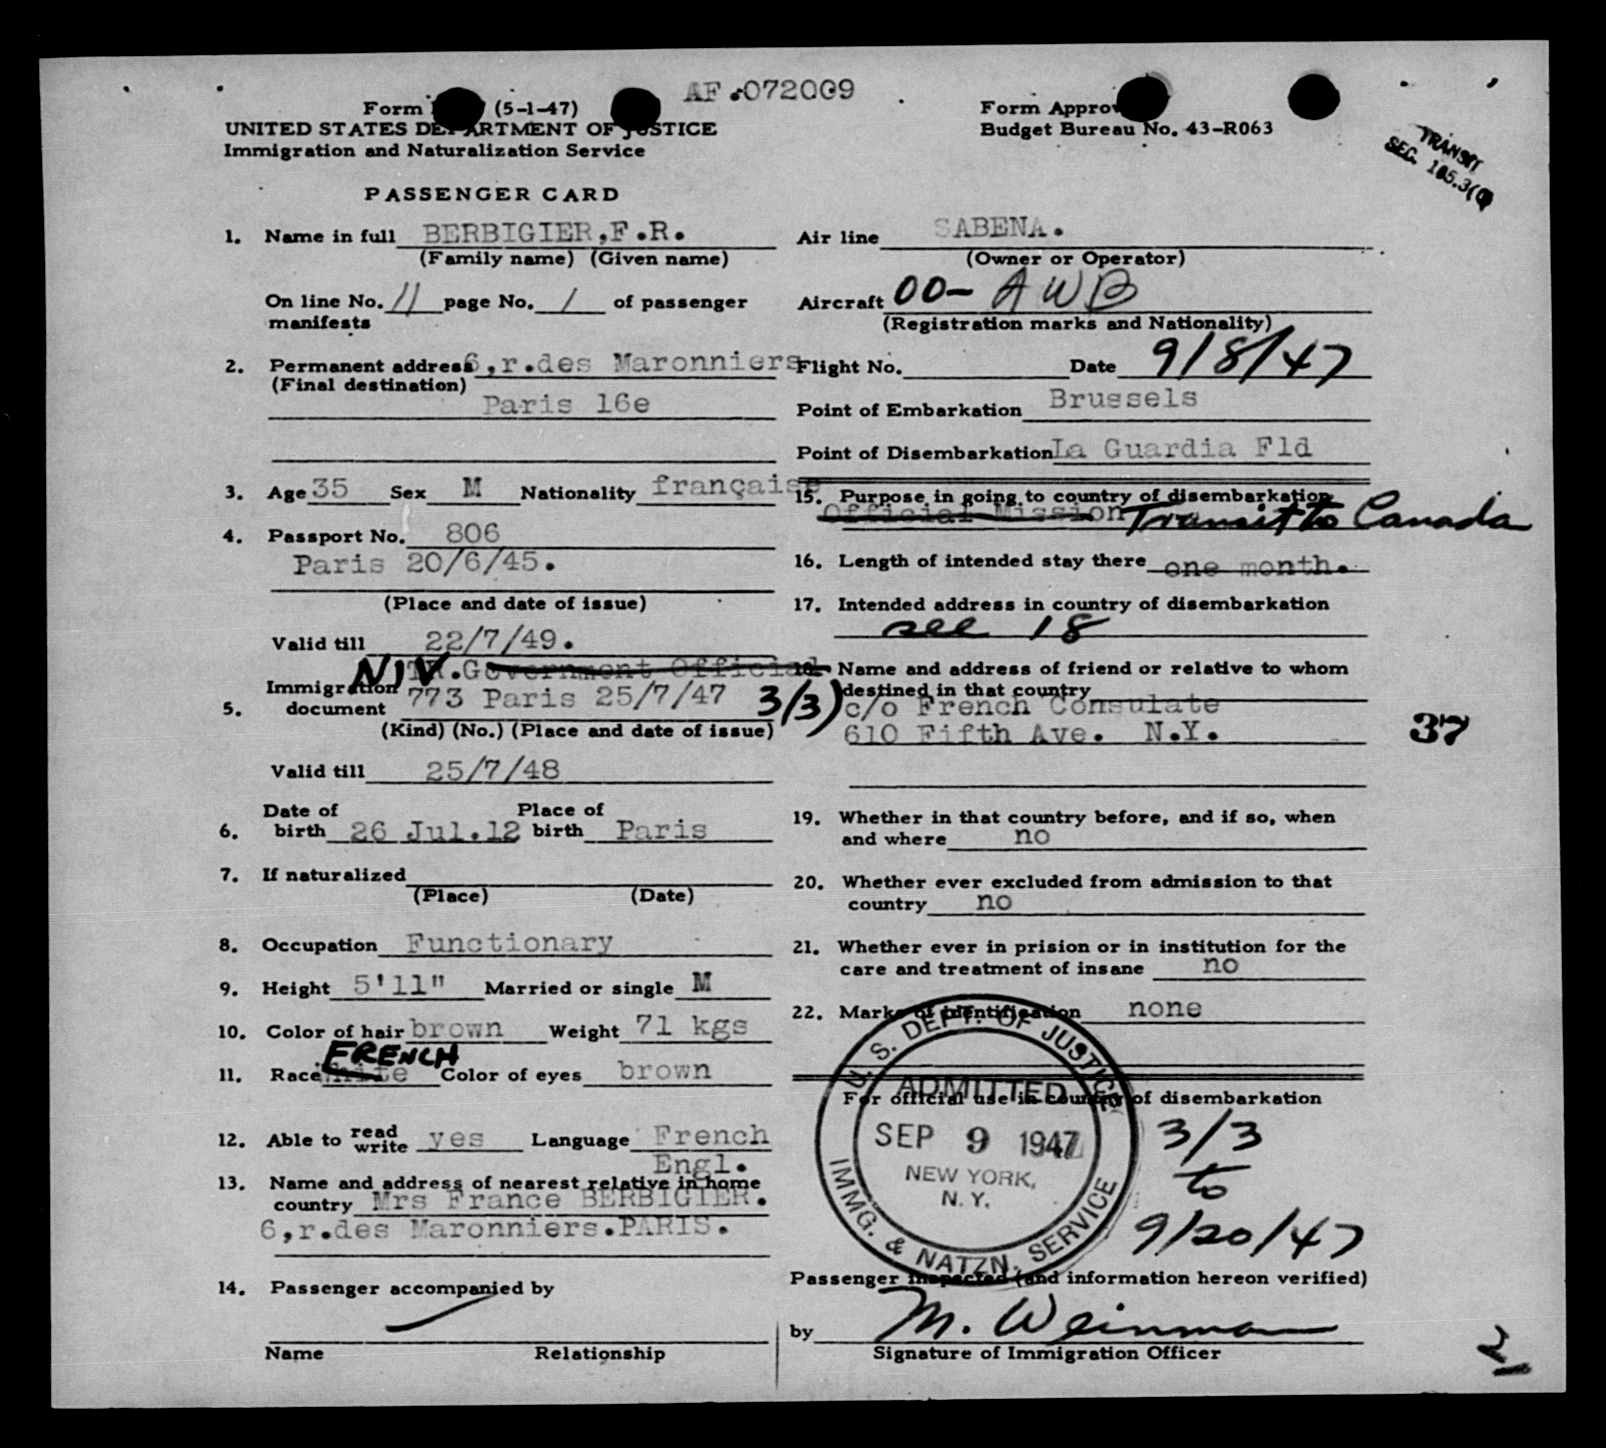 AF.072009
Form (5-1-47)
UNITED STATES DEPARTMENT OF JUSTICE
Immigration and Naturalization Service
Form Approv
Budget Bureau No. 43-R063
TRANSIT
SEC. 105.3(
PASSENGER CARD
1. Name in full BERBIGIER,F.R.
(Family name) (Given name)
On line No. 11 page No. 1 of passenger
manifests
2. Permanent address 6,r.des Maronniers
(Final destination)
Paris 16e
3. Age 35 Sex M Nationality française
4. Passport No. 806
Paris 20/6/45.
(Place and date of issue)
Valid till 22/7/49.
NIV TR.Government Official
5. Immigration document 773 Paris 25/7/47 3/3)
(Kind) (No.) (Place and date of issue)
Valid till 25/7/48
6. Date of birth 26 Jul.12 Place of birth Paris
7. If naturalized
(Place) (Date)
8. Occupation Functionary
9. Height 5'11" Married or single M
10. Color of hair brown Weight 71 kgs
FRENCH
11. Race white Color of eyes brown
12. Able to read write yes Language French
Engl.
13. Name and address of nearest relative in home
country Mrs France BERBIGIER.
6,r.des Maronniers.PARIS.
14. Passenger accompanied by
Name Relationship
Air line SABENA.
(Owner or Operator)
Aircraft OO- AWB
(Registration marks and Nationality)
Flight No. Date 9/8/47
Point of Embarkation Brussels
Point of Disembarkation La Guardia Fld
15. Purpose in going to country of disembarkation
Official Mission Transit to Canada
16. Length of intended stay there one month.
17. Intended address in country of disembarkation
see 18
18. Name and address of friend or relative to whom
destined in that country
c/o French Consulate
610 Fifth Ave. N.Y.
37
19. Whether in that country before, and if so, when
and where no
20. Whether ever excluded from admission to that
country no
21. Whether ever in prision or in institution for the
care and treatment of insane no
22. Marks of identification none
For official use in country of disembarkation
U. S. DEPT. OF JUSTICE
ADMITTED
SEP 9 1947
NEW YORK,
N. Y.
IMMG. & NATZN. SERVICE
3/3
to
9/20/47
Passenger inspected (and information hereon verified)
by M. Weinman
Signature of Immigration Officer
21